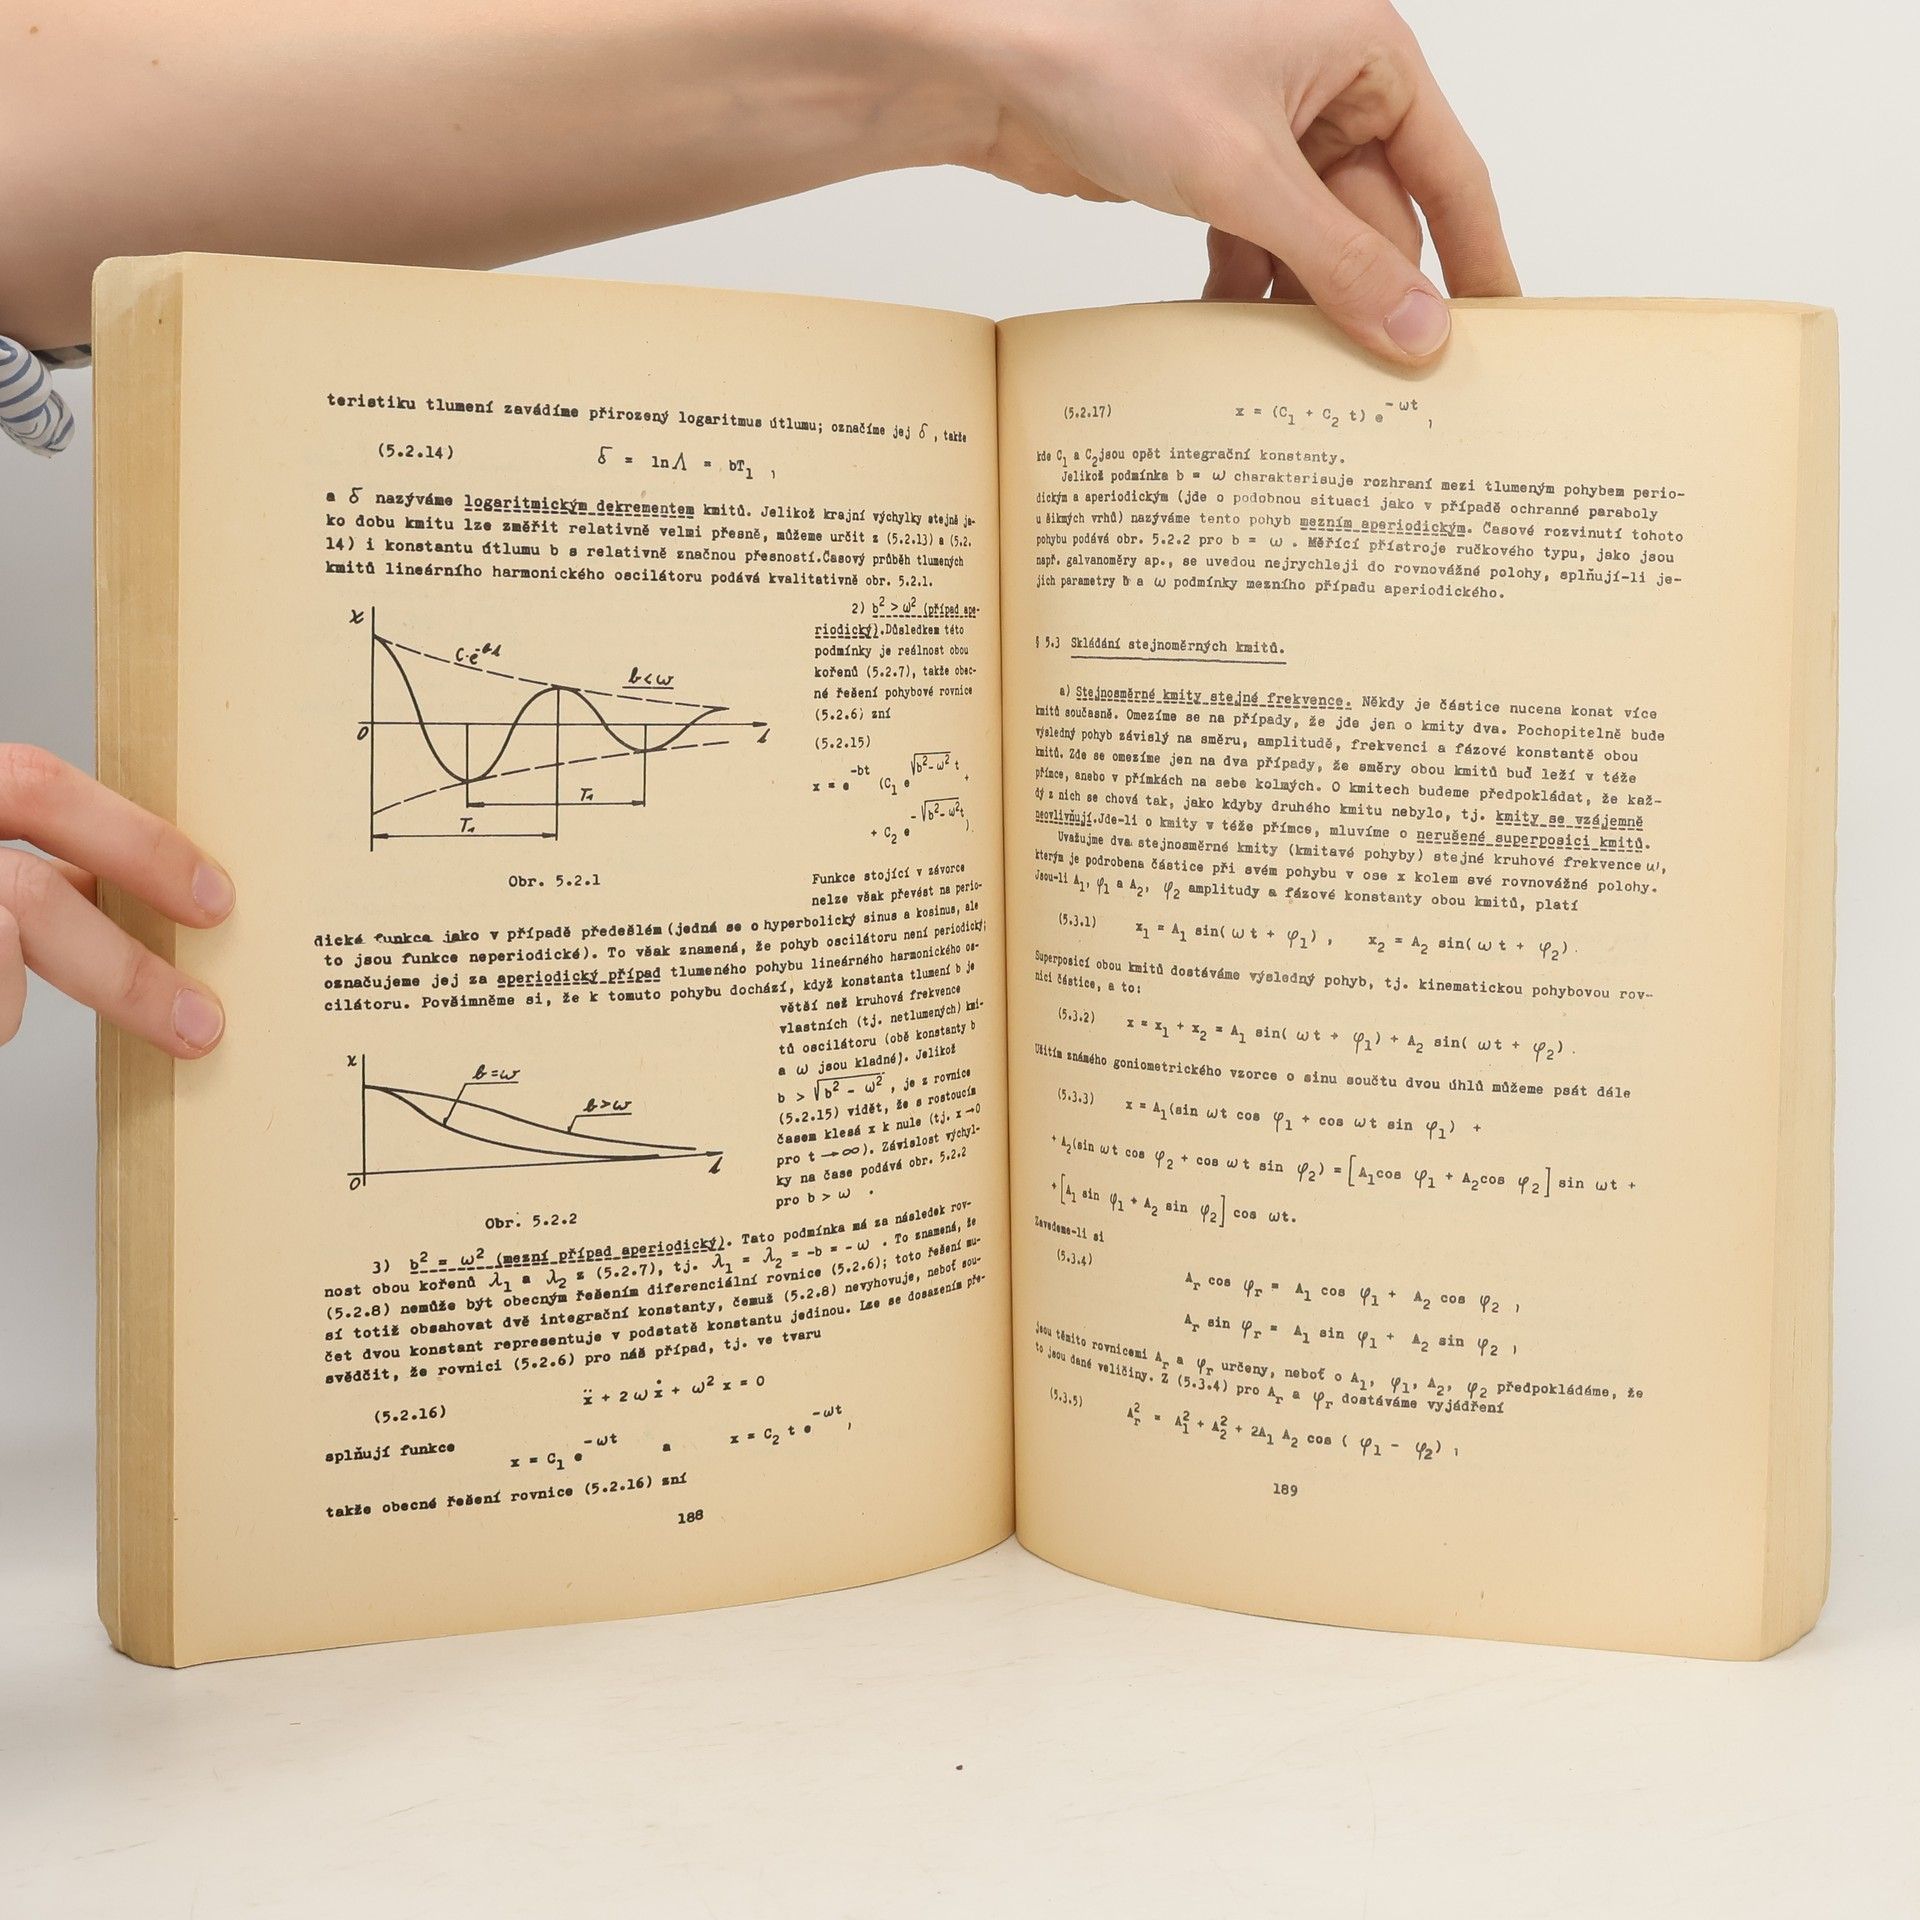 teristiku tlumení zavádíme přirozený logaritmus útlumu; označíme jej δ , takže
(5.2.14) δ = lnΛ = bT₁ ,
a δ nazýváme logaritmickým dekrementem kmitů. Jelikož krajní výchylky stejně ja-
ko dobu kmitu lze změřit relativně velmi přesně, můžeme určit z (5.2.13) a (5.2.
14) i konstantu útlumu b s relativně značnou přesností.Časový průběh tlumených
kmitů lineárního harmonického oscilátoru podává kvalitativně obr. 5.2.1.
x
C·e⁻ᵇᵗ
b<ω
0
t
T₁
T₁
Obr. 5.2.1
2) b² > ω² (případ ape-
riodický).Důsledkem této
podmínky je reálnost obou
kořenů (5.2.7), takže obec-
né řešení pohybové rovnice
(5.2.6) zní
(5.2.15)
x = e^-bt (C₁ e^√(b²-ω²) t +
+ C₂ e^-√(b²-ω²)t ).
Funkce stojící v závorce
nelze však převést na perio-
dické funkce jako v případě předešlém (jedná se o hyperbolický sinus a kosinus, ale
to jsou funkce neperiodické). To však znamená, že pohyb oscilátoru není periodický;
označujeme jej za aperiodický případ tlumeného pohybu lineárního harmonického os-
cilátoru. Povšimněme si, že k tomuto pohybu dochází, když konstanta tlumení b je
větší než kruhová frekvence
vlastních (tj. netlumených) kmi-
tů oscilátoru (obě konstanty b
a ω jsou kladné). Jelikož
b > √(b² - ω²) , je z rovnice
(5.2.15) vidět, že s rostoucím
časem klesá x k nule (tj. x→0
pro t → ∞). Závislost výchyl-
ky na čase podává obr. 5.2.2
pro b > ω .
x
b=ω
b>ω
0
t
Obr. 5.2.2
3) b² = ω² (mezní případ aperiodický). Tato podmínka má za následek rov-
nost obou kořenů λ₁ a λ₂ z (5.2.7), tj. λ₁ = λ₂ = -b = - ω . To znamená, že
(5.2.8) nemůže být obecným řešením diferenciální rovnice (5.2.6); toto řešení mu-
sí totiž obsahovat dvě integrační konstanty, čemuž (5.2.8) nevyhovuje, neboť sou-
čet dvou konstant representuje v podstatě konstantu jedinou. Lze se dosazením pře-
svědčit, že rovnici (5.2.6) pro náš případ, tj. ve tvaru
(5.2.16) ẍ + 2 ω ẋ + ω² x = 0
splňují funkce x = C₁ e^-ωt a x = C₂ t e^-ωt ,
takže obecné řešení rovnice (5.2.16) zní
188
(5.2.17) x = (C₁ + C₂ t) e^-ωt ,
kde C₁ a C₂jsou opět integrační konstanty.
Jelikož podmínka b = ω charakterisuje rozhraní mezi tlumeným pohybem perio-
dickým a aperiodickým (jde o podobnou situaci jako v případě ochranné paraboly
u šikmých vrhů) nazýváme tento pohyb mezním aperiodickým. Časové rozvinutí tohoto
pohybu podává obr. 5.2.2 pro b = ω . Měřící přístroje ručkového typu, jako jsou
např. galvanoměry ap., se uvedou nejrychleji do rovnovážné polohy, splňují-li je-
jich parametry b a ω podmínky mezního případu aperiodického.
§ 5.3 Skládání stejnoměrných kmitů.
a) Stejnosměrné kmity stejné frekvence. Někdy je částice nucena konat více
kmitů současně. Omezíme se na případy, že jde jen o kmity dva. Pochopitelně bude
výsledný pohyb závislý na směru, amplitudě, frekvenci a fázové konstantě obou
kmitů. Zde se omezíme jen na dva případy, že směry obou kmitů buď leží v téže
přímce, anebo v přímkách na sebe kolmých. O kmitech budeme předpokládat, že kaž-
dý z nich se chová tak, jako kdyby druhého kmitu nebylo, tj. kmity se vzájemně
neovlivňují.Jde-li o kmity v téže přímce, mluvíme o nerušené superposici kmitů.
Uvažujme dva stejnosměrné kmity (kmitavé pohyby) stejné kruhové frekvence ω,
kterým je podrobena částice při svém pohybu v ose x kolem své rovnovážné polohy.
Jsou-li A₁, φ₁ a A₂, φ₂ amplitudy a fázové konstanty obou kmitů, platí
(5.3.1) x₁ = A₁ sin( ω t + φ₁) , x₂ = A₂ sin( ω t + φ₂) .
Superposicí obou kmitů dostáváme výsledný pohyb, tj. kinematickou pohybovou rov-
nici částice, a to:
(5.3.2) x = x₁ + x₂ = A₁ sin( ωt + φ₁) + A₂ sin( ωt + φ₂) .
Užitím známého goniometrického vzorce o sinu součtu dvou úhlů můžeme psát dále
(5.3.3) x = A₁(sin ωt cos φ₁ + cos ωt sin φ₁) +
+ A₂(sin ωt cos φ₂ + cos ωt sin φ₂) = [A₁cos φ₁ + A₂cos φ₂] sin ωt +
+ [A₁ sin φ₁ + A₂ sin φ₂] cos ωt.
Zavedeme-li si
(5.3.4)
Aᵣ cos φᵣ = A₁ cos φ₁ + A₂ cos φ₂ ,
Aᵣ sin φᵣ = A₁ sin φ₁ + A₂ sin φ₂ ,
jsou těmito rovnicemi Aᵣ a φᵣ určeny, neboť o A₁, φ₁, A₂, φ₂ předpokládáme, že
to jsou dané veličiny. Z (5.3.4) pro Aᵣ a φᵣ dostáváme vyjádření
(5.3.5) Aᵣ² = A₁² + A₂² + 2A₁ A₂ cos ( φ₁ - φ₂) ,
189